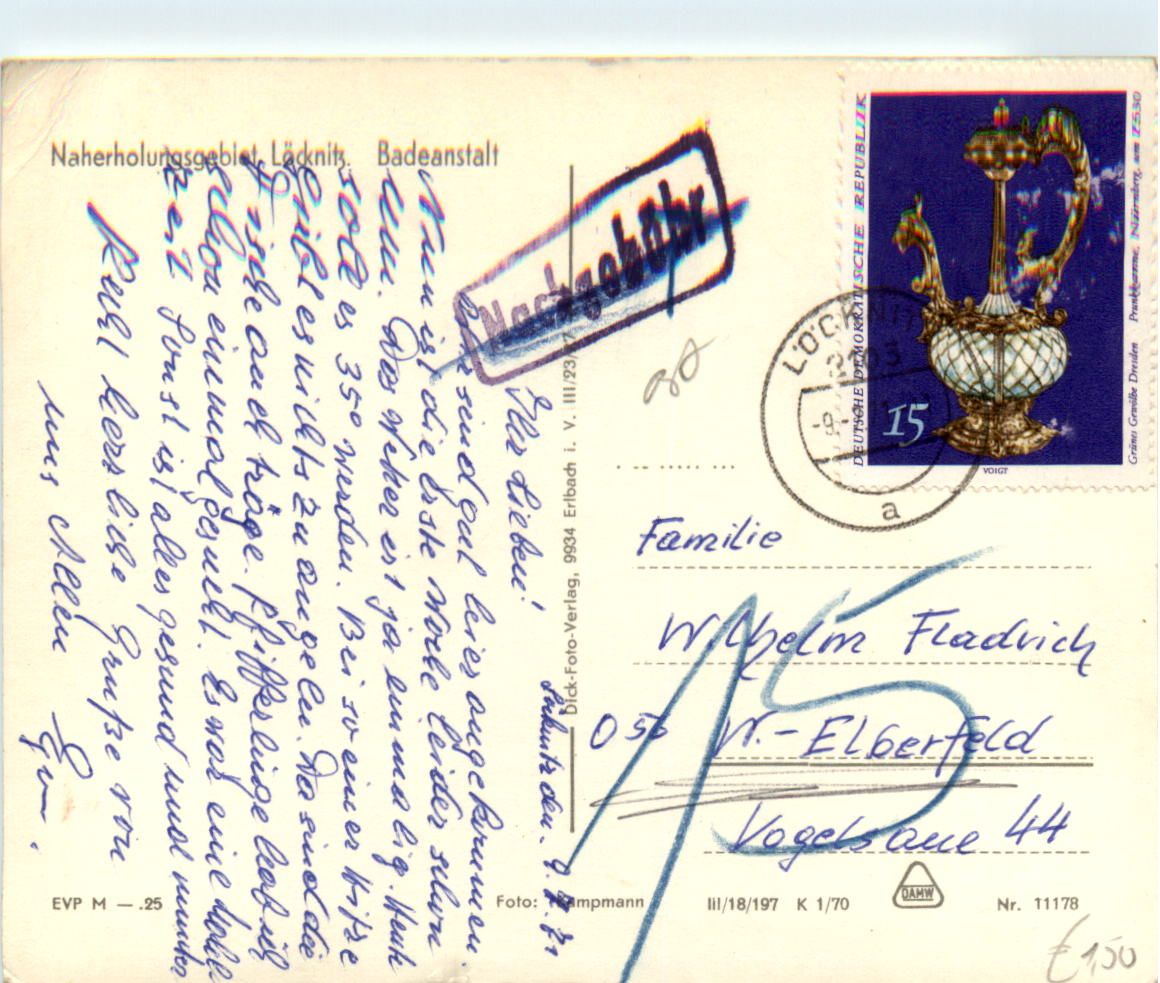 Naherholungsgebiet Löcknitz. Badeanstalt
Nachgebühr
DEUTSCHE DEMOKRATISCHE REPUBLIK
15
VOIGT
Grünes Gewölbe Dresden Prunkkanne, Nürnberg, um 1530
LÖCKNITZ
2103
a
Löcknitz den. 9.7.71
Ihr Lieben!
sind gut hier angekommen.
Nun ist die erste Woche leider schon
um. Das Wetter ist ja einmalig. Heute
soll es 35° werden. Bei so einer Hitze
gibt es nichts zu angeln. Da sind die
Fische auch träge. Pfifferlinge hab ich
schon einmal gesucht. Es war eine volle
Zeit. Sonst ist alles gesund und munter
Recht herzliche Grüße von
uns Allen
Dick-Foto-Verlag, 9934 Erlbach i. V. III/23/
Familie
Wilhelm Fladrich
056 W.-Elberfeld
Vogelsaue 44
15
EVP M — .25
Foto:
III/18/197 K 1/70
DAMW
Nr. 11178
€ 1,50